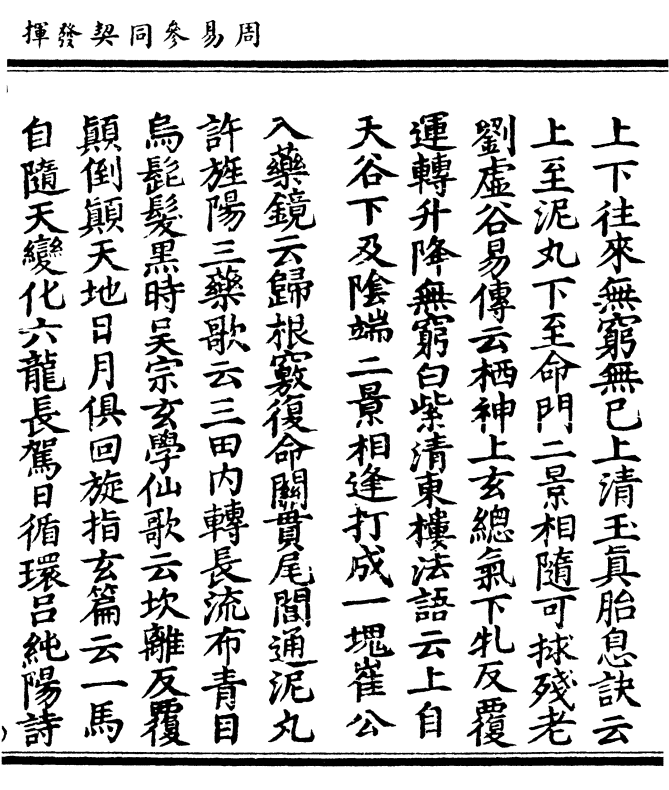 周易參同契發揮
上下往來無窮無已上清玉眞胎息訣云
上至泥丸下至命門二景相隨可救殘老
劉虛谷易傳云栖神上玄總氣下牝反覆
運轉升降無窮白紫清東樓法語云上自
天谷下及陰端二景相逢打成一塊崔公
入藥鏡云歸根竅復命關貫尾閭通泥丸
許旌陽三藥歌云三田内轉長流布青目
烏髭髮黒時吴宗玄學仙歌云坎離反覆
顛倒顛天地日月俱回旋指玄篇云一馬
自隨天變化六龍長駕日循環吕純陽詩